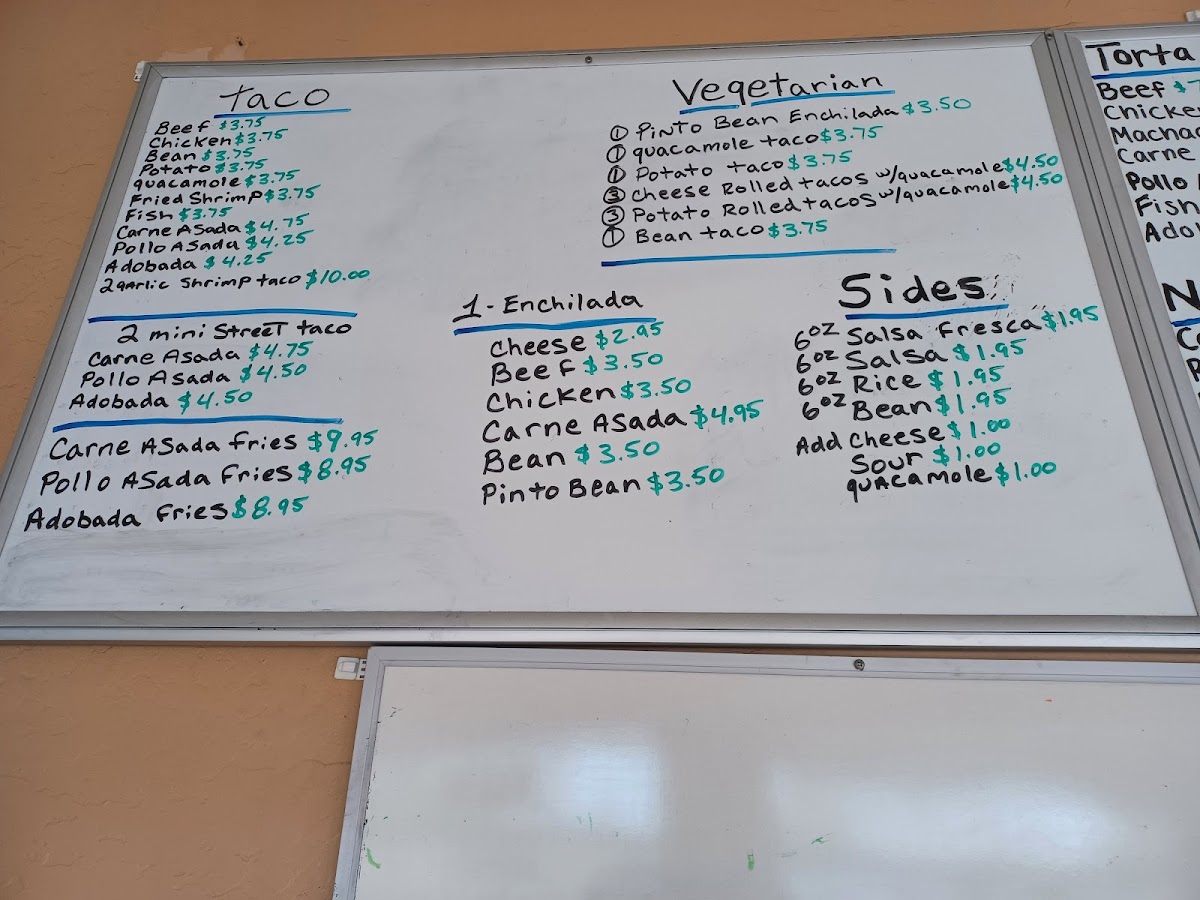 taco
Beef $3.75
Chicken $3.75
Bean $3.75
Potato $3.75
guacamole $3.75
Fried Shrimp $3.75
Fish $3.75
Carne Asada $4.75
Pollo Asada $4.25
Adobada $4.25
2 garlic Shrimp taco $10.00
2 mini Street taco
Carne Asada $4.75
Pollo Asada $4.50
Adobada $4.50
Carne Asada Fries $9.95
Pollo Asada Fries $8.95
Adobada Fries $8.95
1 - Enchilada
Cheese $2.95
Beef $3.50
Chicken $3.50
Carne Asada $4.95
Bean $3.50
Pinto Bean $3.50
Vegetarian
① Pinto Bean Enchilada $3.50
① guacamole taco $3.75
① Potato taco $3.75
③ Cheese Rolled tacos w/guacamole $4.50
③ Potato Rolled tacos w/guacamole $4.50
① Bean taco $3.75
Sides
6oz Salsa Fresca $1.95
6oz Salsa $1.95
6oz Rice $1.95
6oz Bean $1.95
Add Cheese $1.00
Sour $1.00
guacamole $1.00
Torta
Beef $7
Chicke
Machac
Carne
Pollo
Fish
Ado